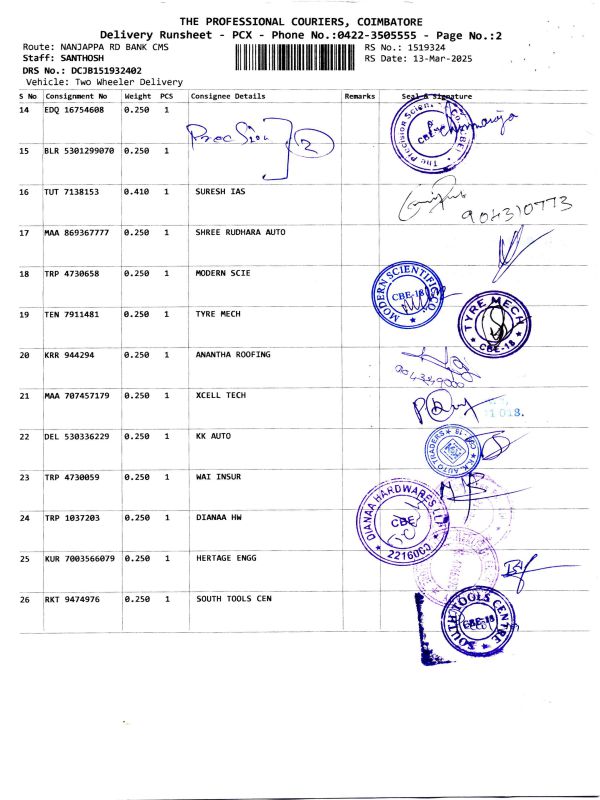 THE PROFESSIONAL COURIERS, COIMBATORE
Delivery Runsheet - PCX - Phone No.:0422-3505555 - Page No.:2
Route: NANJAPPA RD BANK CMS RS No.: 1519324
Staff: SANTHOSH RS Date: 13-Mar-2025
DRS No.: DCJB151932402
Vehicle: Two Wheeler Delivery
S No Consignment No Weight PCS Consignee Details Remarks Seal & Signature
14 EDQ 16754608 0.250 1
2
15 BLR 5301299070 0.250 1
16 TUT 7138153 0.410 1 SURESH IAS
17 MAA 869367777 0.250 1 SHREE RUDHARA AUTO
18 TRP 4730658 0.250 1 MODERN SCIE
MODERN SCIENTIFIC CO. CBE-18
19 TEN 7911481 0.250 1 TYRE MECH
TYRE MECH CBE-18
20 KRR 944294 0.250 1 ANANTHA ROOFING
21 MAA 707457179 0.250 1 XCELL TECH
22 DEL 530336229 0.250 1 KK AUTO
K.K. AUTO TRADERS
23 TRP 4730059 0.250 1 WAI INSUR
24 TRP 1037203 0.250 1 DIANAA HW
DIANAA HARDWARES LLP CBE
25 KUR 7003566079 0.250 1 HERTAGE ENGG
26 RKT 9474976 0.250 1 SOUTH TOOLS CEN
SOUTH TOOLS CENTRE CBE-18